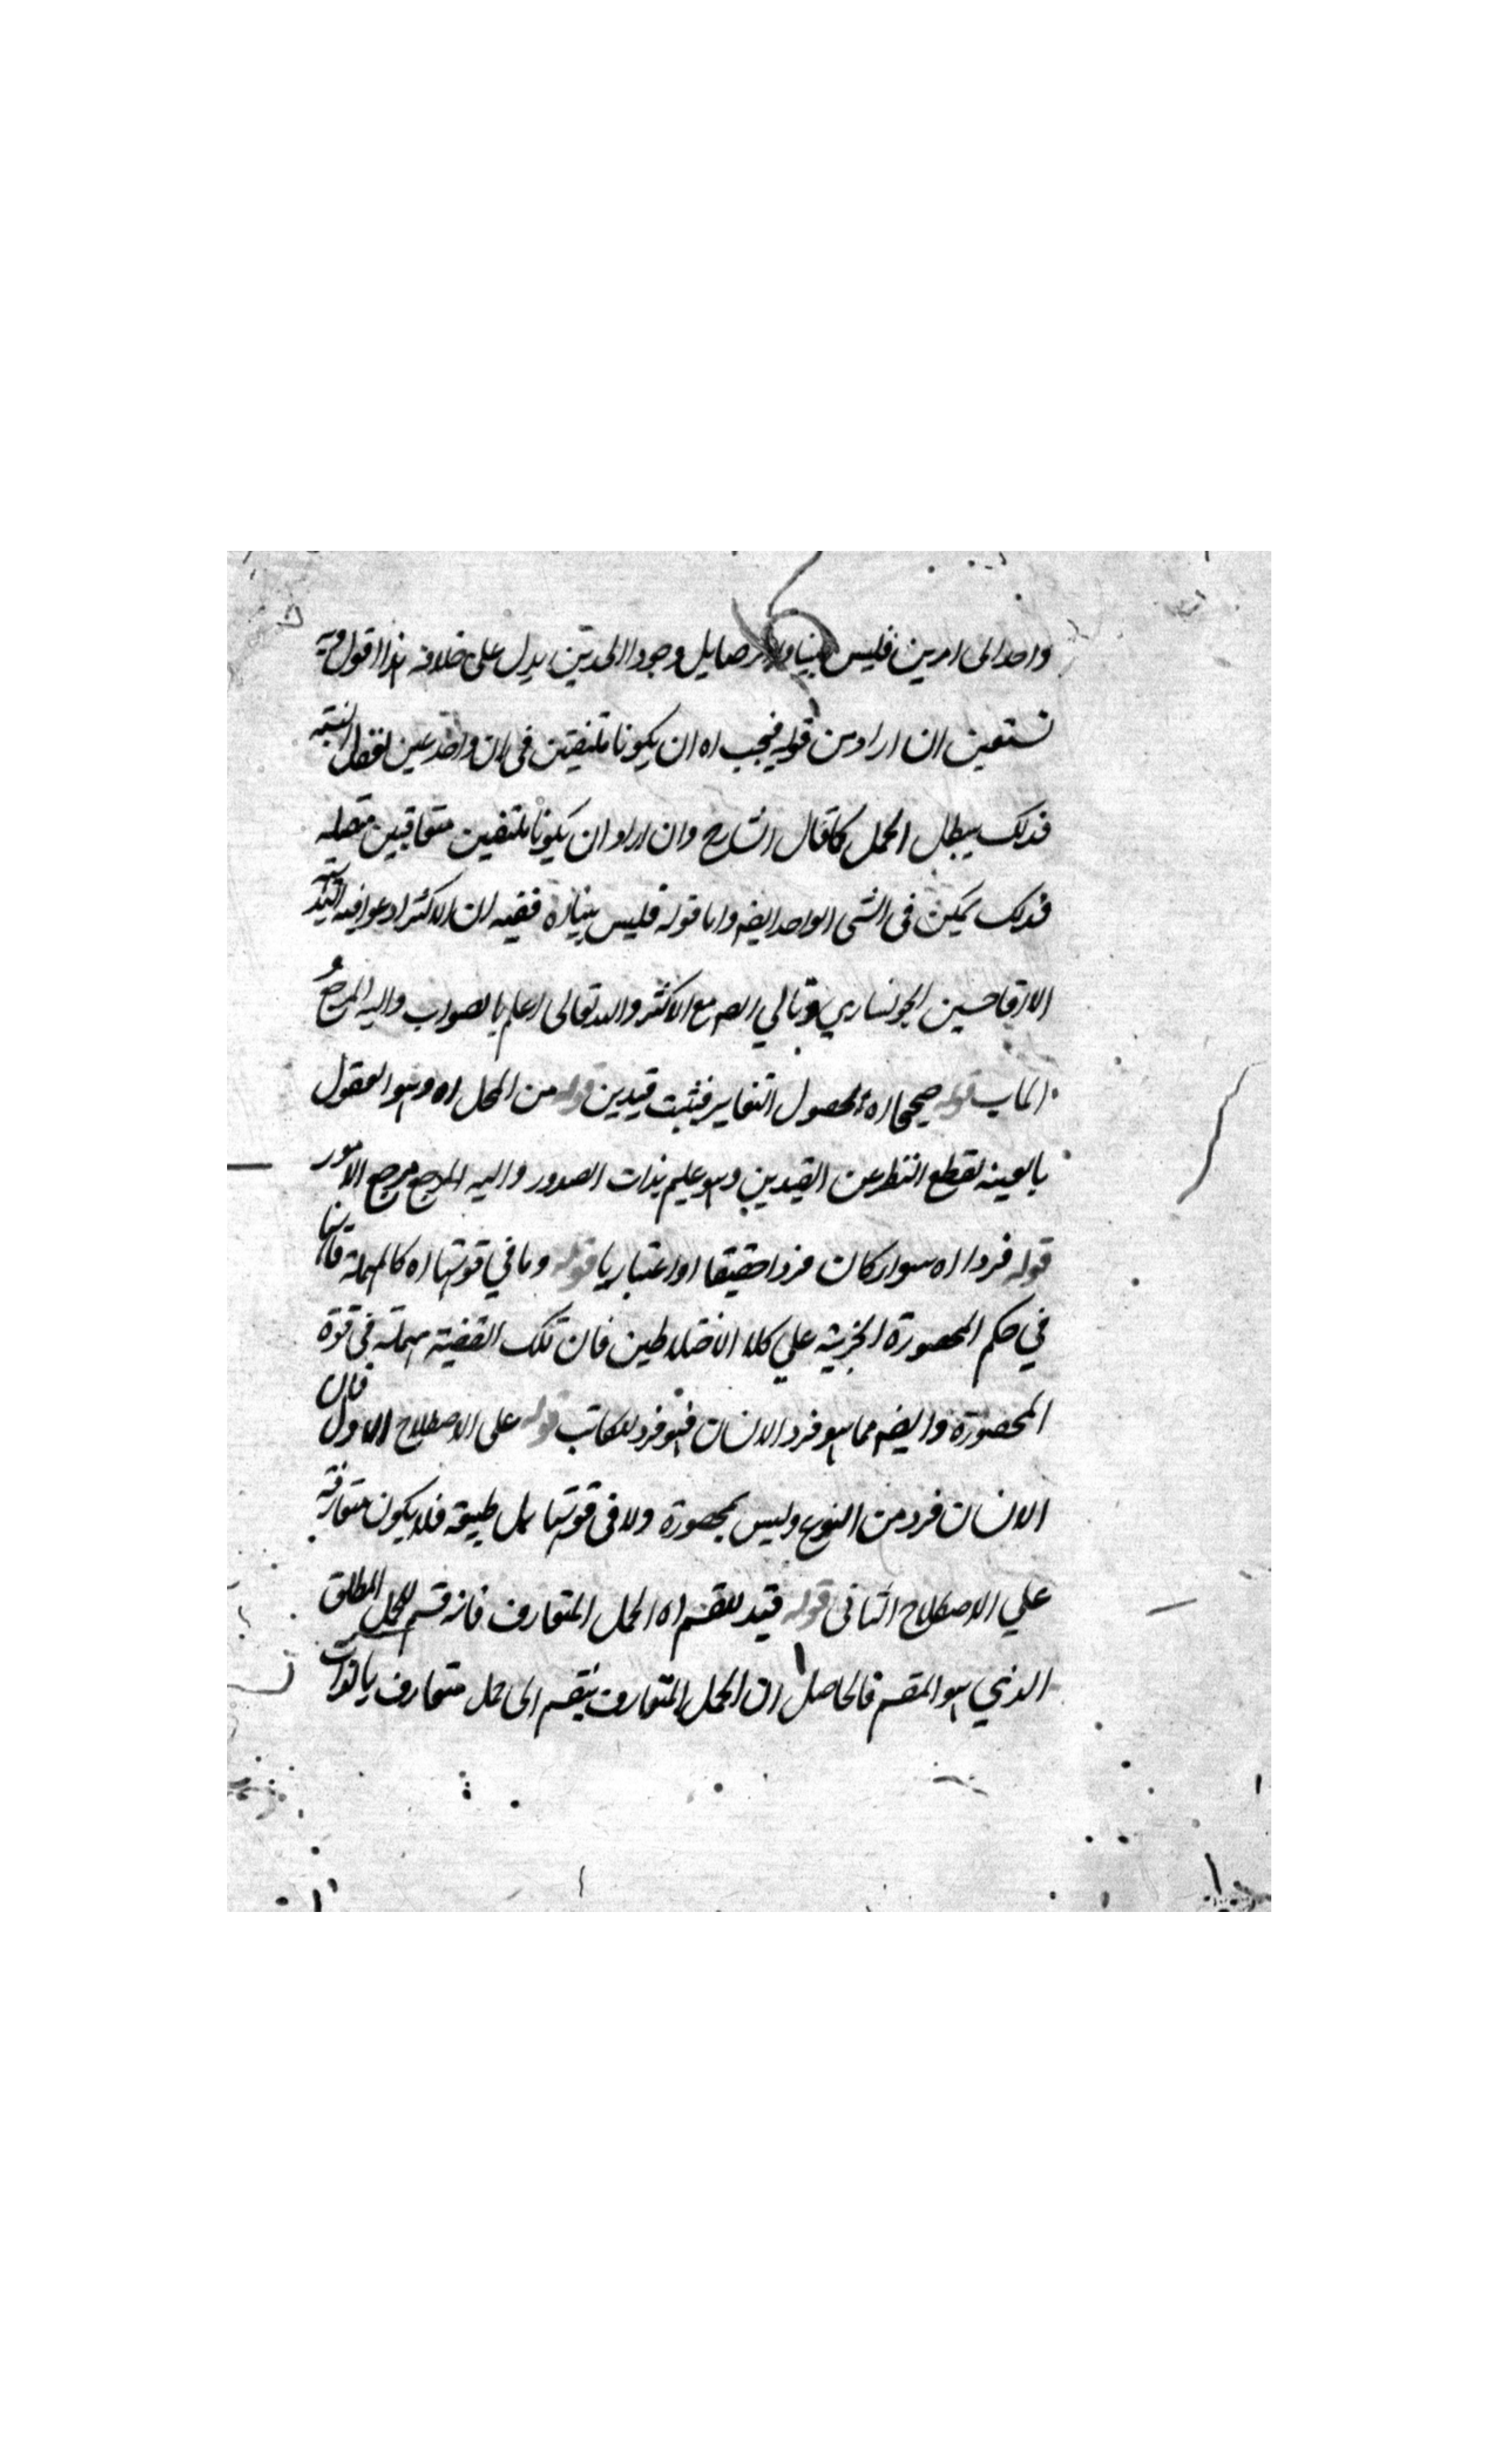 واحد الى امرين فليس بينا ولا وجود الحدتين يدل على خلافه هذا اقول وبه
نستعين ان اراد من قوله فيجب اه ان يكونا ملتفتين في ان واحد عين لفظ النسبة
فذلك يبطل الحمل كما قال الشارح وان اراد ان يكونا ملتفتين متعاقبين متصله
فذلك يمكن في الشي الواحد ايضه واما قوله فليس بينا اه ففيه ان الاكثر ادعوا فيه
الا اقا حسين الخونساري وتبالي المص مع الاكثر والله تعالى اعلم بالصواب واليه المرجع
الماب قوله صحيحا اه لحصول التغاير فثبت قيدين قوله من المحل اه وهو العقول
بالعينه لقطع النظر عن القيدين وهو عليم بذات الصدور واليه المرجع مرجع الامور
قوله فردا اه سوا كان فردا حقيقا او اعتباريا قوله وما في قوتها اه كالمهملة فانها
في حكم المحصورة الجزئيه علي كلا الاختلاطين فان تلك القضية مهملة في قوة
المحصورة وايضه مما هو فرد الانسان فهو فرد للكاتب قوله على الاصطلاح الاول فان
الانسان فرد من النوع وليس بمحصورة ولا في قوتها بل طبيعة فلا يكون متعارفة
علي الاصطلاح الثاني قوله قيد للقسم اه الحمل المتعارف فانه قسم للحمل المطلق
الذي هو المقسم فالحاصل ان الحمل المتعارف ينقسم الى حمل متعارف بالذات